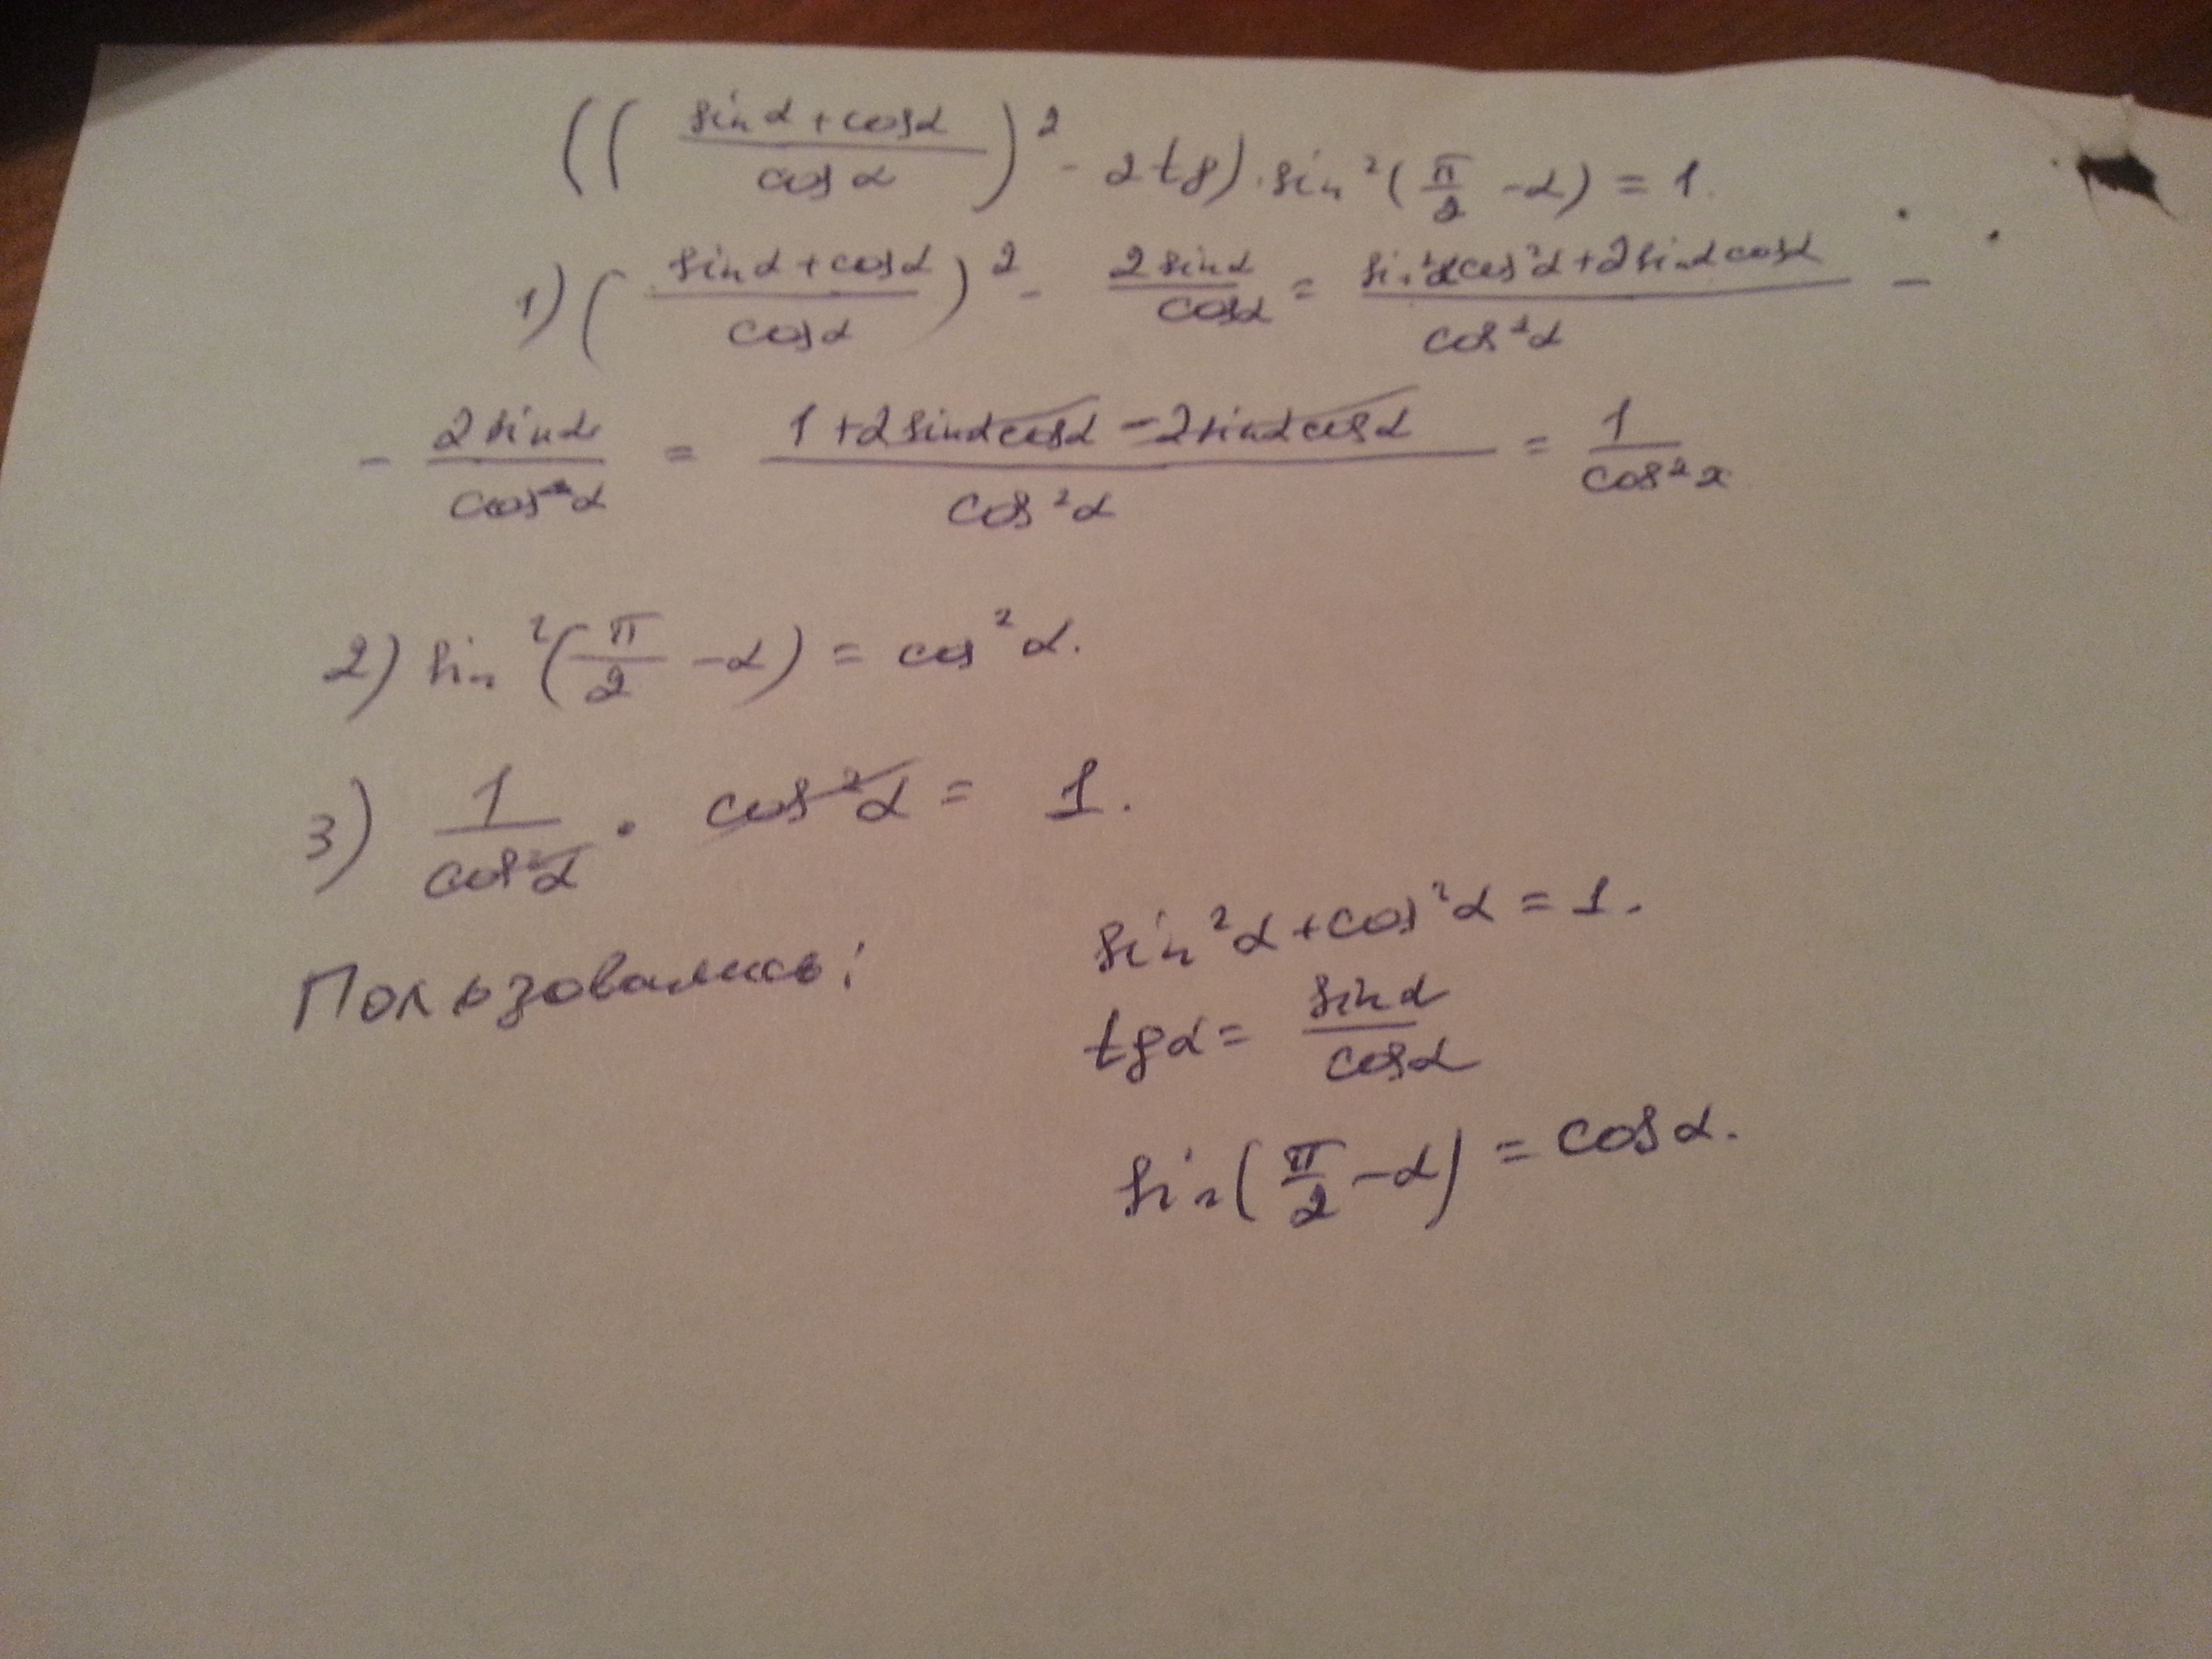 ((\frac{sin α + cos α}{cos α})^2 - 2tg) · sin^2(\frac{π}{2} - α) = 1.
1) (\frac{sin α + cos α}{cos α})^2 - \frac{2 sin α}{cos α} = \frac{sin^2 α cos^2 α + 2 sin α cos α}{cos^2 α} -
- \frac{2 sin α}{cos α} = \frac{1 + 2 sin α cos α - 2 sin α cos α}{cos^2 α} = \frac{1}{cos^2 x}
2) sin^2(\frac{π}{2} - α) = cos^2 α.
3) \frac{1}{cos^2 α} · cos^2 α = 1.
Пользовались:
sin^2 α + cos^2 α = 1.
tg α = \frac{sin α}{cos α}
sin(\frac{π}{2} - α) = cos α.